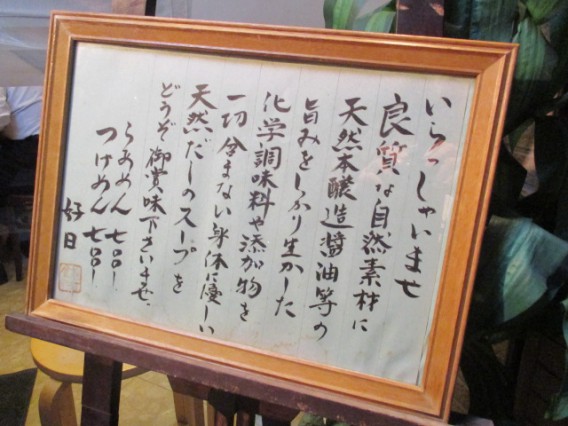 いらっしゃいませ
良質な自然素材に
天然本醸造醤油等の
旨みをしっかり生かした
化学調味料や添加物を
一切含まない身体に優しい
天然だしのスープを
どうぞ御賞味下さいませ。
らあめん 七〇〇ー
つけめん 七〇〇ー
好日